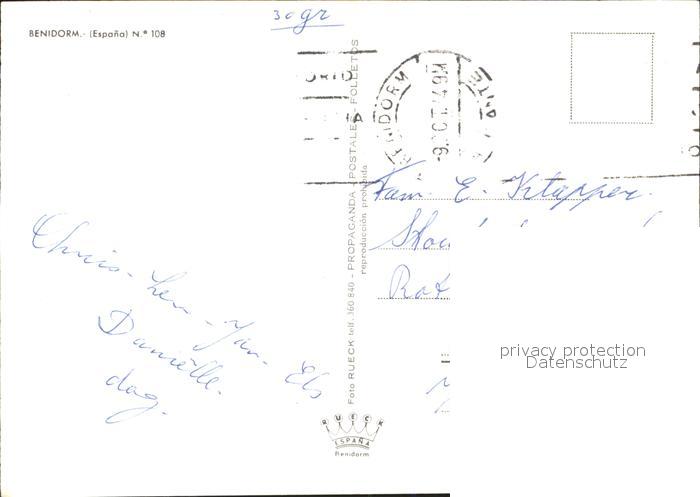 30 gr
BENIDORM.- (España) N.º 108
BENIDORM
Foto RUECK telf. 360-840 - PROPAGANDA - POSTALES - FOLLETOS
reproducción prohibida
Fam. E. Klapper.
Chris - Leny - Jan - Els
Danielle.
dag.
RUECK
ESPAÑA
Benidorm
privacy protection
Datenschutz